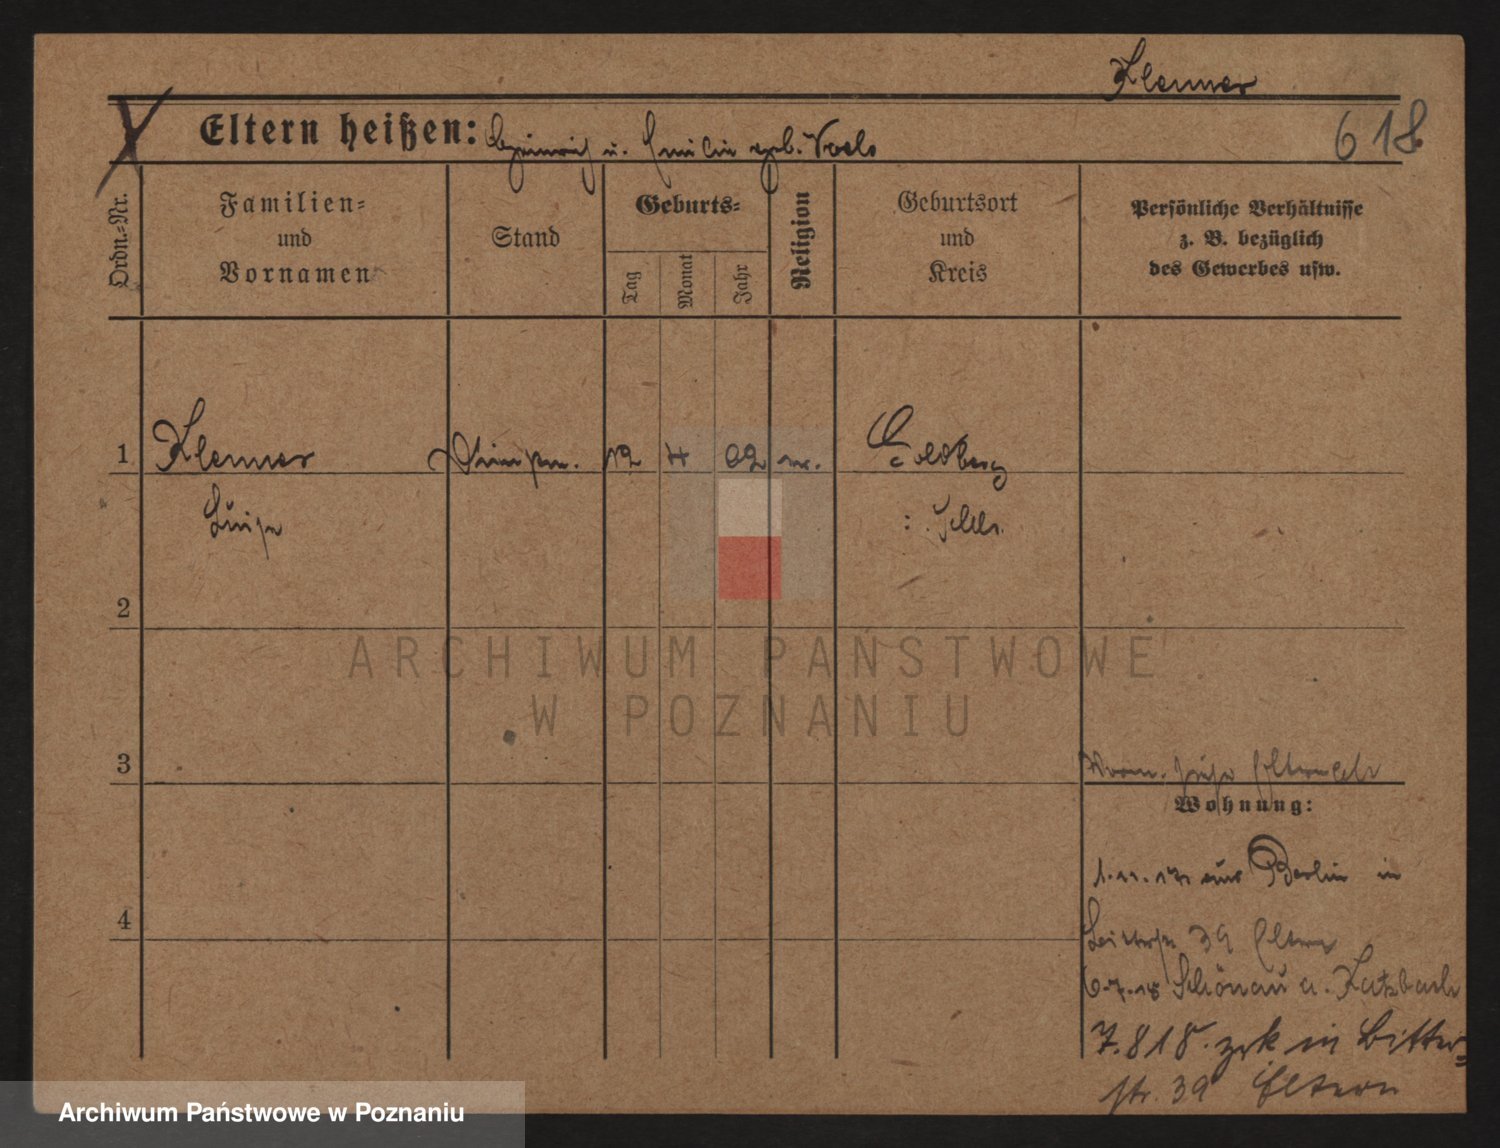 Klenner
Eltern heißen: Heinrich u. Emilie geb. Noels
618
Ordn.=Nr.
Familien=
und
Vornamen
Stand
Geburts=
Tag
Monat
Jahr
Religion
Geburtsort
und
Kreis
Persönliche Verhältnisse
z. B. bezüglich
des Gewerbes usw.
1 Klenner 12 4 02 Goldberg
Luise : Schles.
2
ARCHIWUM PAŃSTWOWE
W POZNANIU
3
Wohnung:
1.11.17 aus Berlin in
4
39 Eltern
6.7.18 Schönau a. Katzbach
7.8 18. zrk in Bitter=
str. 39 Eltern
Archiwum Państwowe w Poznaniu